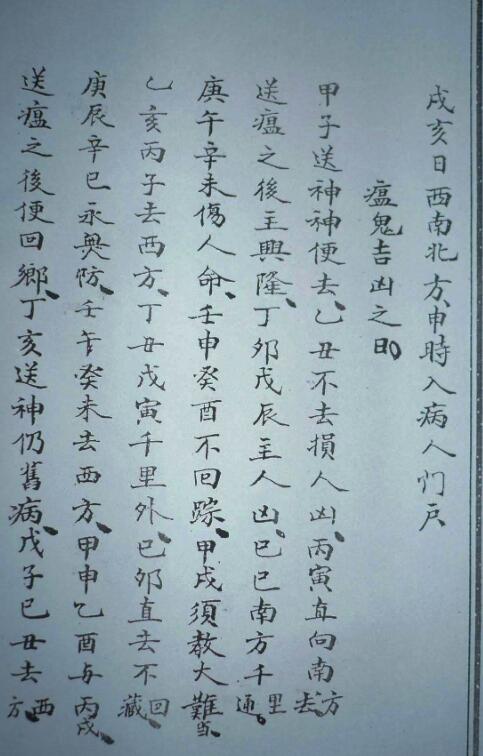 戌亥日西南北方、申時入病人门戶
瘟鬼吉凶之日
甲子送神神便去、乙丑不去損人凶、丙寅直向南方去
送瘟之後主興隆、丁夘戊辰主人凶、巳巳南方千里通。
庚午辛未傷人命、壬申癸酉不回踪、甲戌須教大難当、
乙亥丙子去西方、丁丑戊寅千里外、巳夘直去不回藏
庚辰辛巳永興防、壬午癸未去西方、甲申乙酉与丙戌、
送瘟之後便回鄉、丁亥送神仍舊病、戊子巳丑去西方